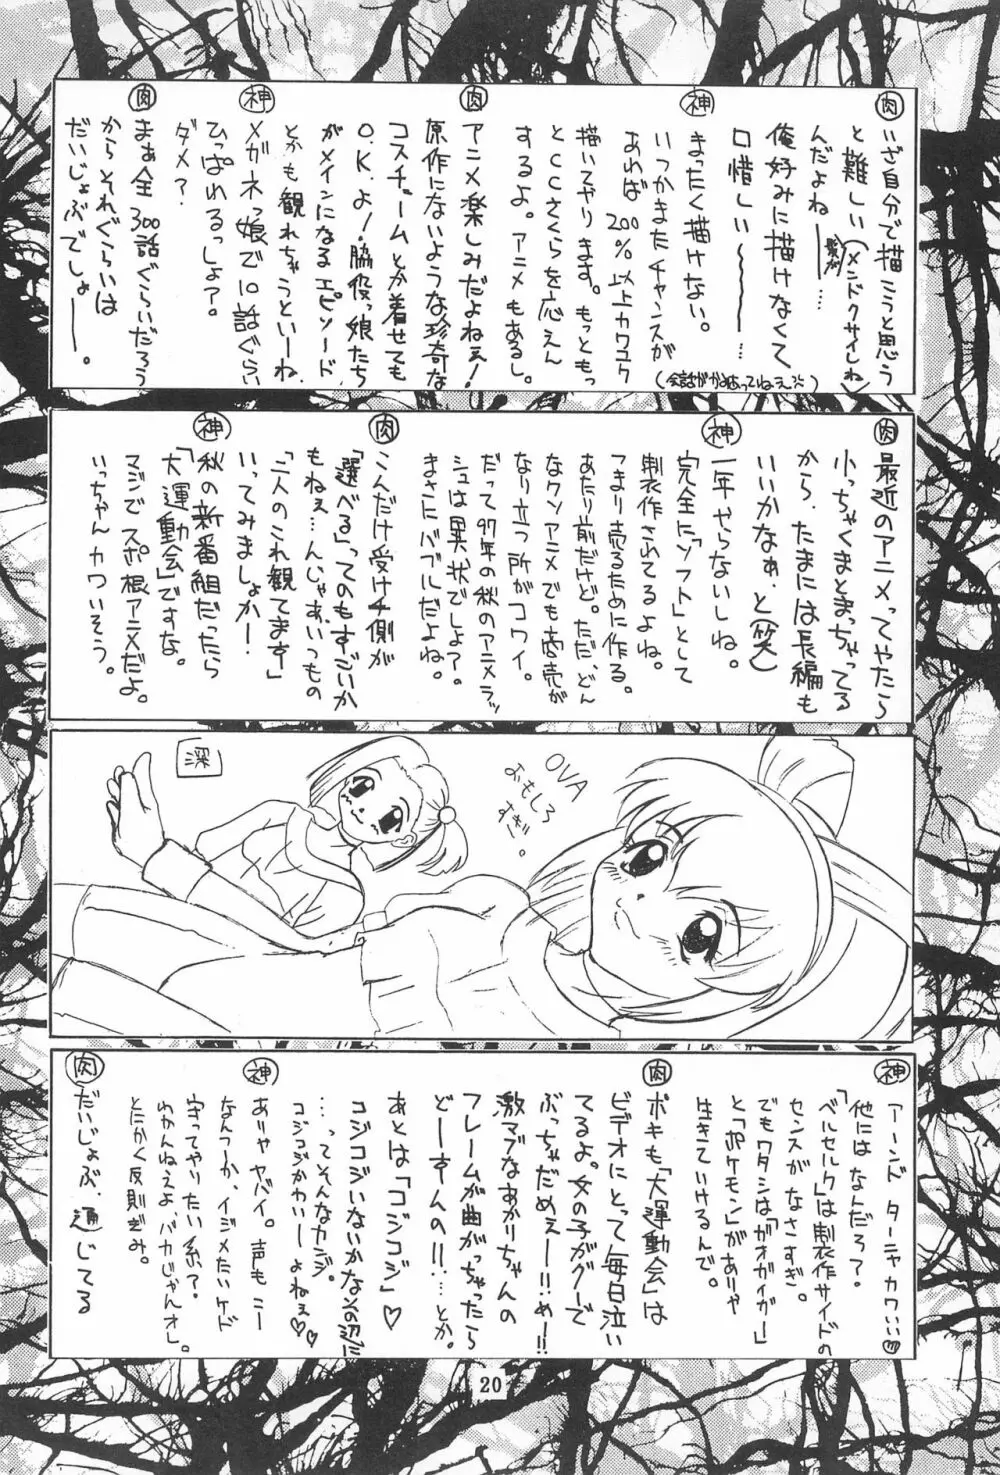 肉
いざ自分で描こうと思う
と難しい(メンドクサイしね)
んだよねー ……
俺好みに描けなくて
口惜しい〜〜〜…
神
まったく描けない。
いつかまたチャンスが
あれば200%以上カワユク
描いてやります。もっともっ
とCCさくらを応えん
するよ。アニメもあるし。
(会話がかみ合っていねえ)
肉
アニメ楽しみだよねぇ!
原作にないような珍奇な
コスチュームとか着せても
O.K.よ!脇役っ娘たち
がメインになるエピソード
とかも観れちゃうといーね
神
メガネっ娘で10話ぐらい
ひっぱれるっしょ?
ダメ?
肉
まぁ全300話ぐらいだろう
からそれぐらいは
だいじょぶでしょ——。
肉
最近のアニメってやたら
小っちゃくまとまっちゃってる
から、たまには長編も
いいかなぁ、と(笑)
神
一年やらないしね。
完全に「ソフト」として
制作されてるよね。
つまり売るために作る。
あたり前だけど。ただ、どん
なクソアニメでも商売が
なり立つ所がコワイ。
だって97年の秋のアニメラッ
シュは異状でしょ?
まさにバブルだよね。
肉
こんだけ受け手側が
「選べる」ってのもすごいか
もねぇ…んじゃあ、いつもの
「二人のこれ観てます」
いってみましょか!
神
秋の新番組だったら
「大運動会」ですな。
マジでスポ根アニメだよ。
いっちゃんカワいそう。
深
OVA
おもしろ
すぎ。
神
アーンド ターニャカワいい♡
他にはなんだろ?
「ベルセルク」は制作サイドの
センスがなさすぎ。
でもワタシは「ガオガイガー」
と「ポケモン」がありゃ
生きていけるんで。
肉
ボキも「大運動会」は
ビデオにとって毎日泣い
てるよ。女の子がグーで
ぶっちゃだめぇー!!めー!!
激マブなあかりちゃんの
フレームが曲がっちゃったら
どーすんの!!…とか。
あとは「コジコジ」♡
コジコジいないかなぁその辺に
…ってそんなカンジ。
コジコジかわいーよねぇ♡♡
神
ありゃヤバイ。声もニー
なんつーか、イジメたいケド
守ってやりたい系?
わかんねえよ、バカじゃんオレ。
とにかく反則ぎみ。
肉
だいじょぶ、通じてる
20